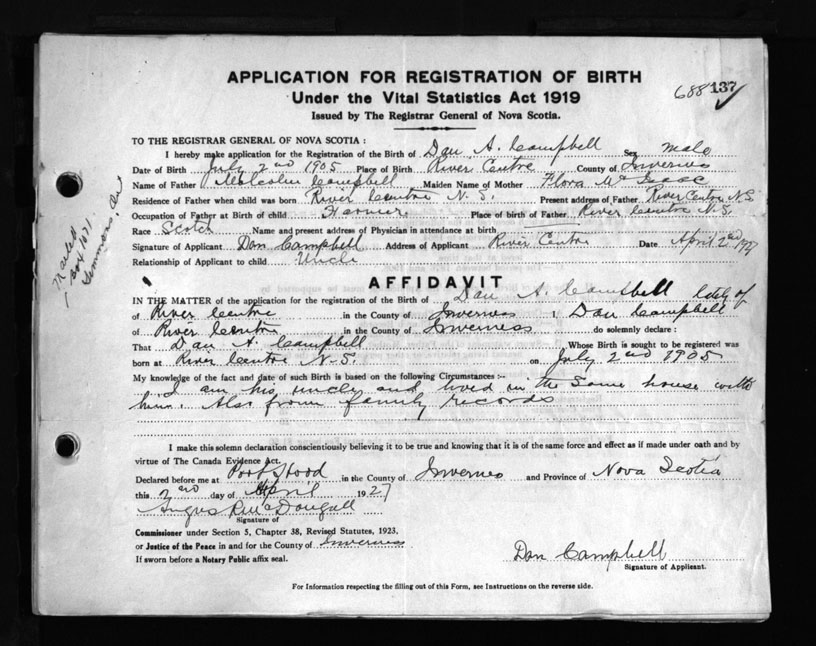 APPLICATION FOR REGISTRATION OF BIRTH
Under the Vital Statistics Act 1919
Issued by The Registrar General of Nova Scotia.
688 137
TO THE REGISTRAR GENERAL OF NOVA SCOTIA :
I hereby make application for the Registration of the Birth of Dan A. Campbell Sex male
Date of Birth July 2nd 1905 Place of Birth River Centre County of Inverness
Name of Father Malcolm Campbell Maiden Name of Mother Flora McIsaac
Residence of Father when child was born River Centre N.S. Present address of Father River Centre N.S.
Occupation of Father at birth of child Farmer Place of birth of Father River Centre N.S.
Race Scotch Name and present address of Physician in attendance at birth
Signature of Applicant Dan Campbell Address of Applicant River Centre Date April 2nd 1927
Relationship of Applicant to child Uncle
Mailed
Box 1071
Timmons, Ont
AFFIDAVIT
IN THE MATTER of the application for the registration of the Birth of Dan A. Campbell
of River Centre in the County of Inverness I Dan Campbell
of River Centre in the County of Inverness do solemnly declare :
That Dan A. Campbell Whose Birth is sought to be registered was
born at River Centre N.S. on July 2nd 1905
My knowledge of the fact and date of such Birth is based on the following Circumstances :-
I am his uncle and lived in the same house with
him. Also from family records
I make this solemn declaration conscientiously believing it to be true and knowing that it is of the same force and effect as if made under oath and by
virtue of The Canada Evidence Act.
Declared before me at Port Hood in the County of Inverness and Province of Nova Scotia
this 2nd day of April 1927
Angus R McDougall
Signature of
Commissioner under Section 5, Chapter 38, Revised Statutes, 1923.
or Justice of the Peace in and for the County of Inverness
If sworn before a Notary Public affix seal.
Dan Campbell
Signature of Applicant.
For Information respecting the filling out of this Form, see Instructions on the reverse side.